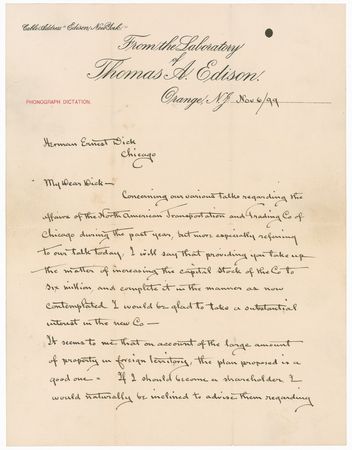 Cable Address "Edison, New York."
From the Laboratory
of
Thomas A. Edison.
Orange, N.J. Nov 6/99
PHONOGRAPH DICTATION.
Herman Ernest Dick
Chicago
My Dear Dick—
Concerning our various talks regarding the
affairs of the North American Transportation and Trading Co of
Chicago during the past year, but more especially referring
to our talk today, I will say that providing you take up
the matter of increasing the capital stock of the Co to
six million and complete it in the manner as now
contemplated I would be glad to take a substantial
interest in the new Co—
It seems to me that on account of the large amount
of property in foreign territory, the plan proposed is a
good one - If I should become a shareholder I
would naturally be inclined to advise them regarding